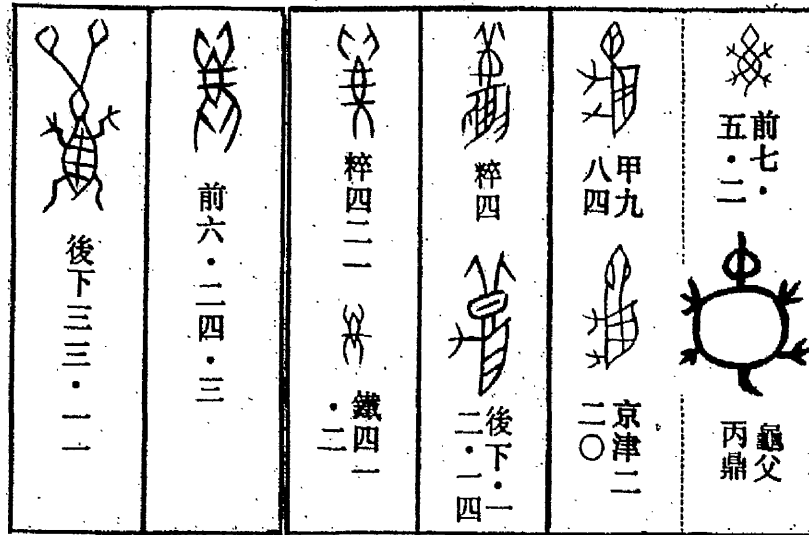 前七・
五・二
龜父
丙鼎
甲九
八四
京津二
二〇
粹四
後下・一
二・一四
粹四二一
鐵四一
・二
前六・二四・三
後下三三・一一